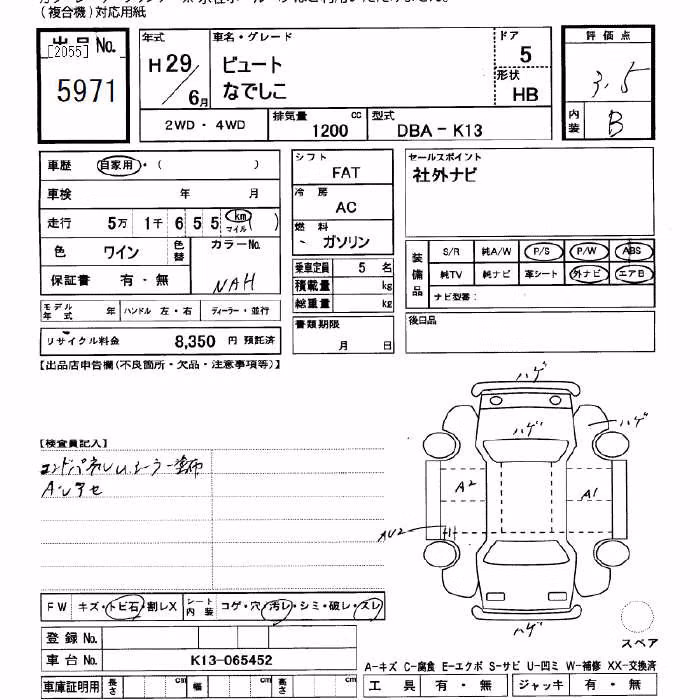 (複合機)対応用紙
出品 No.
[2055]
5971
年式
H29/6月
車名・グレード
ビュート
なでしこ
ドア
5
形状
HB
評価点
3.5
内装
B
2WD・4WD
排気量 cc
1200
型式
DBA-K13
車歴 自家用・( )
車検 年 月
走行 5万 1千 6 5 5 km マイル ( )
色 ワイン 色替 カラーNo.
保証書 有・無 NAH
モデル年式 年 ハンドル 左・右 ディーラー・並行
リサイクル料金 8,350 円 預託済
シフト
FAT
冷房
AC
燃料
ガソリン
乗車定員 5 名
積載量 kg
総重量 kg
書類期限
月 日
セールスポイント
社外ナビ
装備品
S/R 純A/W P/S P/W ABS
純TV 純ナビ 革シート 外ナビ エアB
ナビ型番:
後日品
【出品店申告欄(不良箇所・欠品・注意事項等)】
【検査員記入】
ハゲ
ハゲ
ハゲ
A2
A1
AU2
ハゲ
スペア
FW キズ・トビ石・割レX シート内装 コゲ・穴・汚レ・シミ・破レ・スレ
登録 No.
車台 No. K13-065452
車庫証明用 長さ cm 幅 cm 高さ cm
A-キズ C-腐食 E-エクボ S-サビ U-凹ミ W-補修 XX-交換済
工具 有・無 ジャッキ 有・無